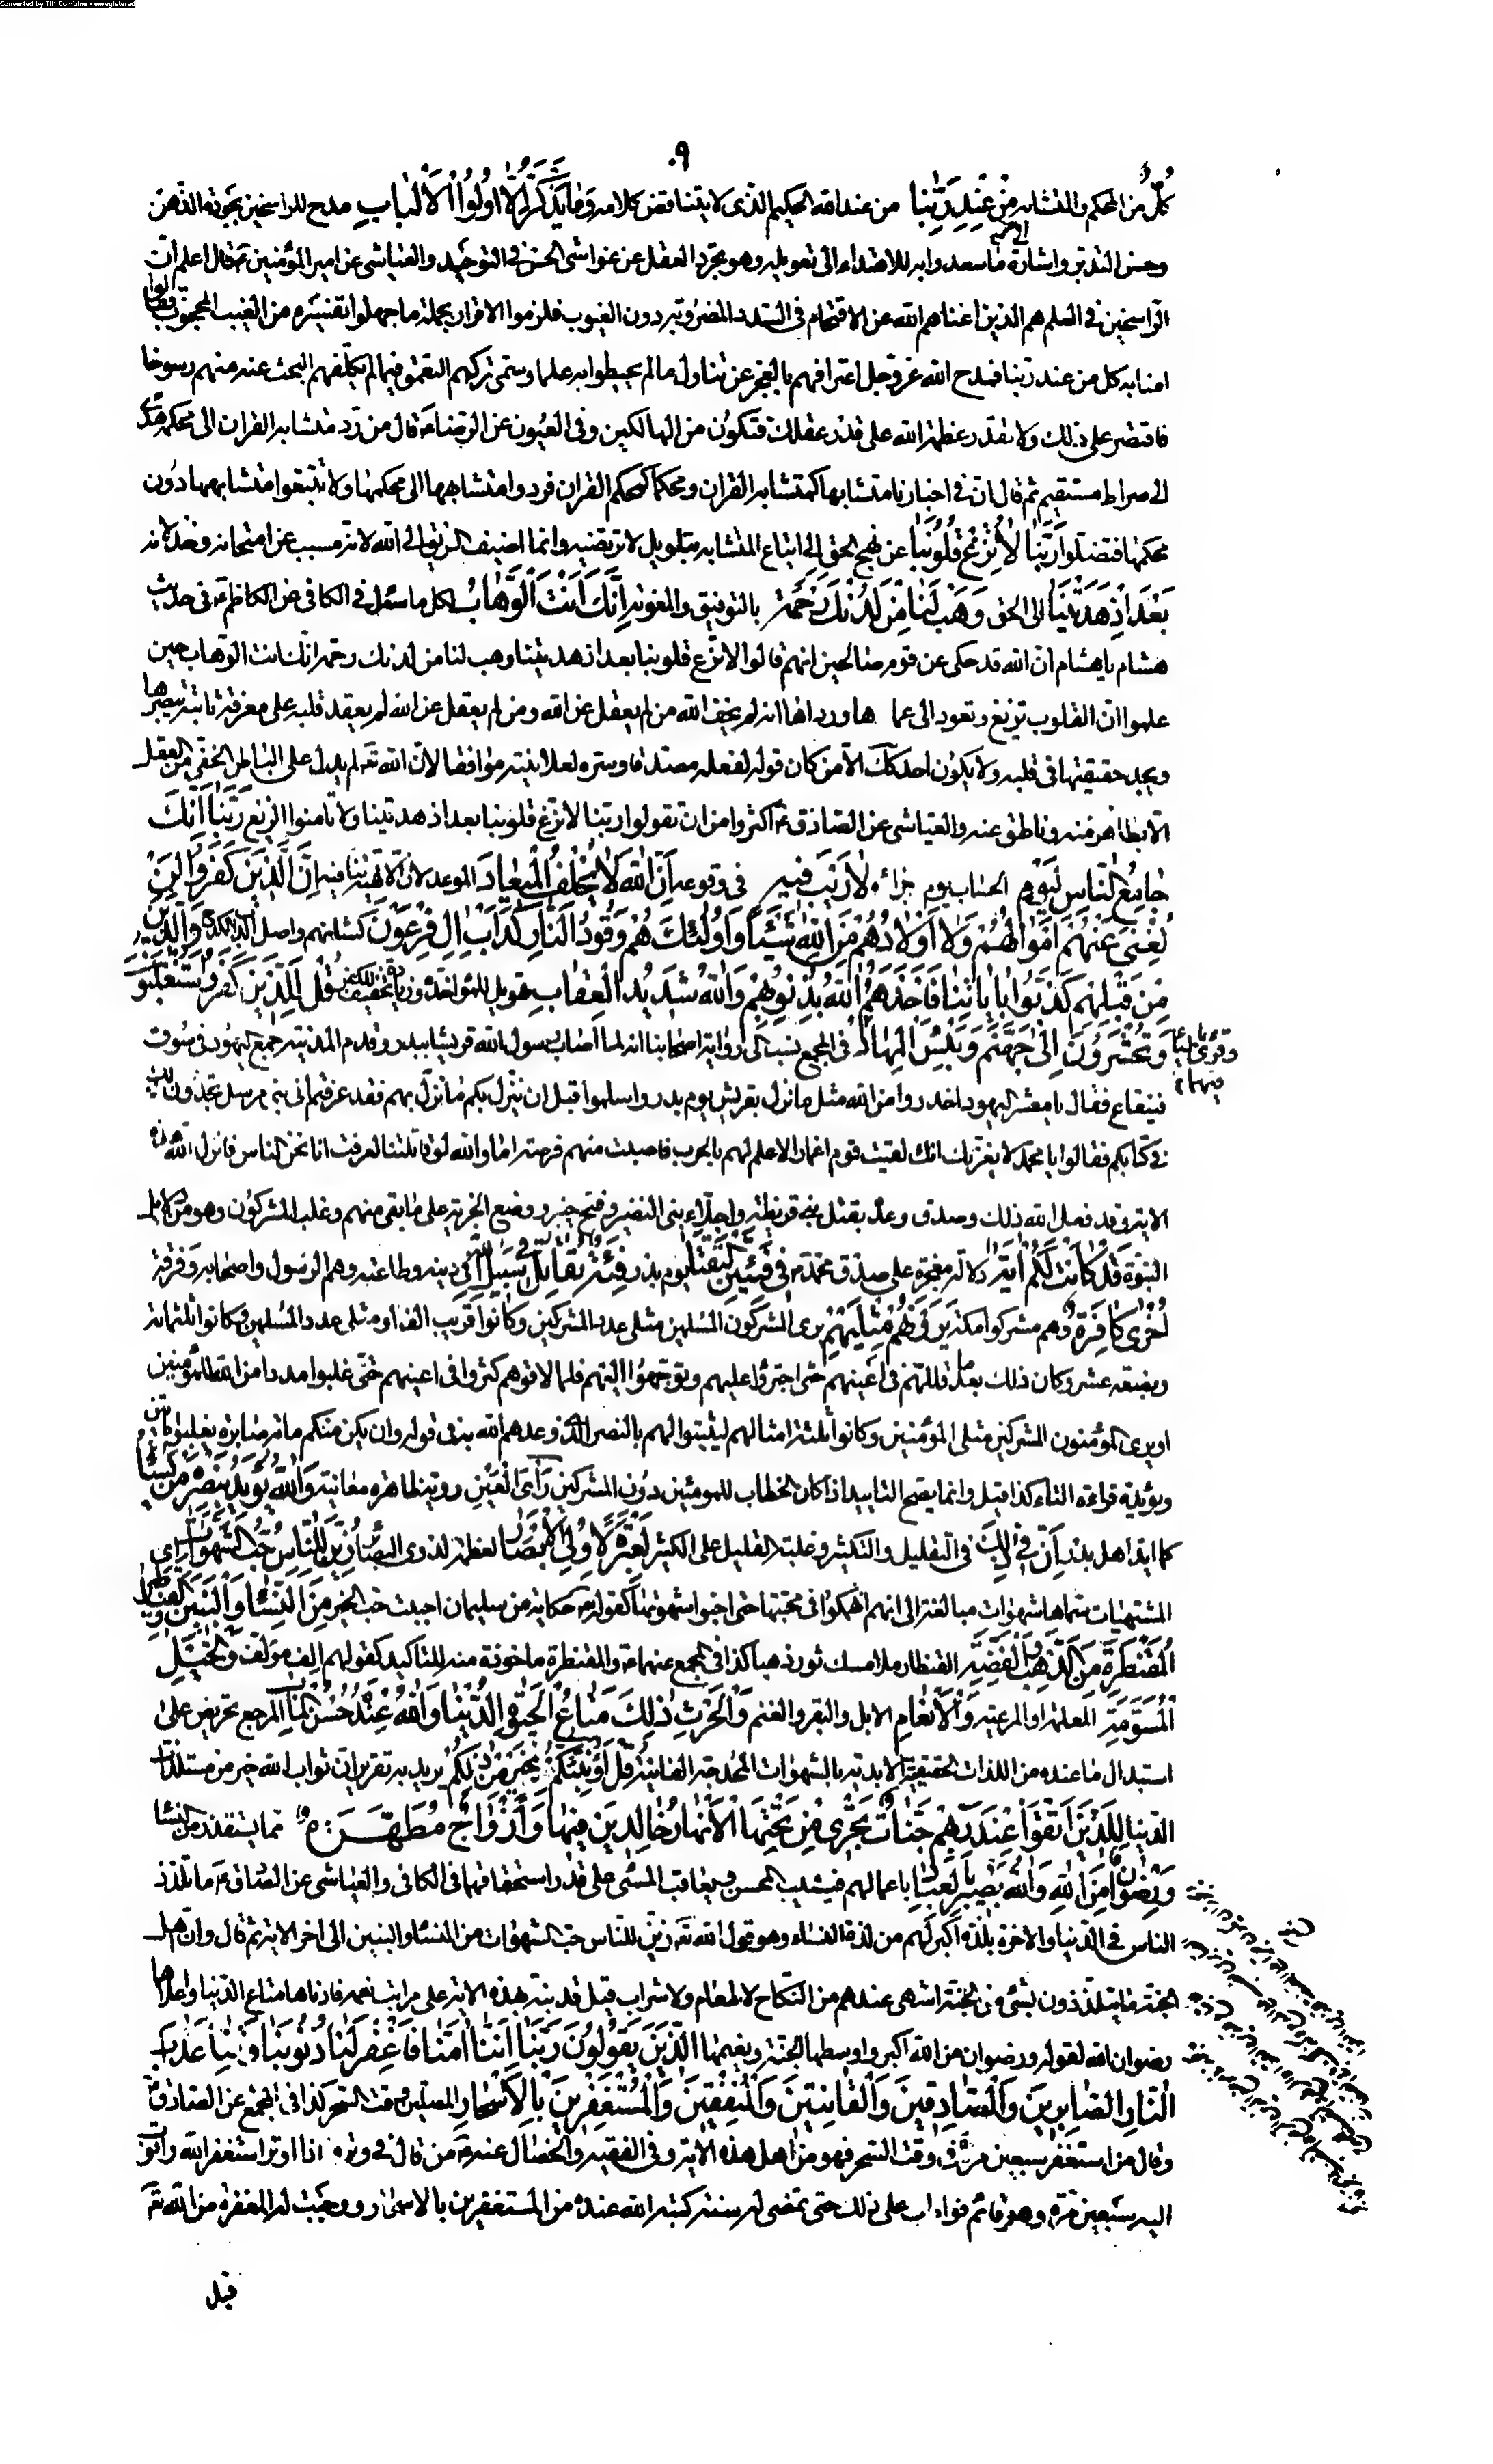 Converted by Tiff Combine - unregistered
٩٠
كل من المحكم والمتشابه مِنْ عِنْدِ رَبِّنا من عند الله الحكيم الذى لا يتناقض كلامه وَمٰا يَذَّكَّرُ اِلّٰا اُولُوا الْاَلْبٰابِ مدح للراسخين بجودة الذهن
وحسن التدبر واشارة الى ما استعدوا به للاهتداء الى تاويله وهو تجرد العقل عن غواشى الحس فى التوحيد والعياشى عن امير المؤمنين ع قال اعلم ان
الراسخين فى العلم هم الذين اغناهم الله عن الاقتحام فى السدد المضروبة دون الغيوب فلزموا الاقرار بجملة ما جهلوا تفسيره من الغيب المحجوب فقالوا
امنا به كل من عند ربنا فمدح الله عز وجل اعترافهم بالعجز عن تناول ما لم يحيطوا به علما وسمى تركهم التعمق فيما لم يكلفهم البحث عنه منهم رسوخا
فاقتصر على ذلك ولا تقدر عظمة الله على قدر عقلك فتكون من الهالكين وفى العيون عن الرضا ع قال من رد متشابه القران الى محكمه هدى
الى صراط مستقيم ثم قال ان فى اخبارنا متشابها كمتشابه القران ومحكما كمحكم القران فردوا متشابهها الى محكمها ولا تتبعوا متشابهها دون
محكمها فتضلوا رَبَّنٰا لٰا تُزِغْ قُلُوبَنٰا عن نهج الحق الى اتباع المتشابه بتاويل لا ترتضيه وانما اضيف الزيغ الى الله لانه مسبب عن امتحانه وخذلانه
بَعْدَ اِذْ هَدَيْتَنٰا الى الحق وَهَبْ لَنٰا مِنْ لَدُنْكَ رَحْمَةً بالتوفيق والمعونة اِنَّكَ اَنْتَ الْوَهّٰابُ لكل ما سئل فى الكافى عن الكاظم ع فى حديث
هشام يا هشام ان الله قد حكى عن قوم صالحين انهم قالوا لا تزغ قلوبنا بعد اذ هديتنا وهب لنا من لدنك رحمة انك انت الوهاب حين
علموا ان القلوب تزيغ وتعود الى عما ها ورداها انه لم يخف الله من لم يعقل عن الله ومن لم يعقل عن الله لم يعقد قلبه على معرفة ثابتة يبصرها
ويجد حقيقتها فى قلبه ولا يكون احد كك الا من كان قوله لفعله مصدقا وسره لعلانيته موافقا لان الله تع لم يدل على الباطن الخفى من العقل
الا بظاهر منه وناطق عنه والعياشى عن الصادق ع اكثروا من ان تقولوا ربنا لا تزغ قلوبنا بعد اذ هديتنا ولا تامنوا الزيغ رَبَّنٰا اِنَّكَ
جٰامِعُ النّٰاسِ لِيَوْمٍ الحساب يوم جزائه لٰا رَيْبَ فيهِ فى وقوعه اِنَّ اللّٰهَ لٰا يُخْلِفُ الْميعٰادَ الموعد لان الالهية تنافيه اِنَّ الَّذينَ كَفَرُوا لَنْ
تُغْنِىَ عَنْهُمْ اَمْوٰالُهُمْ وَلٰا اَوْلٰادُهُمْ مِنَ اللّٰهِ شَيْئًا وَاُولٰئِكَ هُمْ وَقُودُ النّٰارِ كَدَاْبِ اٰلِ فِرْعَوْنَ كشانهم واصل الداب الكدح وَالَّذينَ
مِنْ قَبْلِهِمْ كَذَّبُوا بِاٰيٰاتِنٰا فَاَخَذَهُمُ اللّٰهُ بِذُنُوبِهِمْ وَاللّٰهُ شَديدُ الْعِقٰابِ تهويل للمؤاخذة وزيادة تخويف للكفرة قُلْ لِلَّذينَ كَفَرُوا سَتُغْلَبُونَ
وَتُحْشَرُونَ اِلٰى جَهَنَّمَ وَبِئْسَ الْمِهٰادُ فى المجمع نسب الى رواية اصحابنا انه لما اصاب رسول الله قريشا ببدر وقدم المدينة جمع اليهود فى سوق
وقرئ بالياء
فيهما
قينقاع فقال يا معشر اليهود احذروا من الله مثل ما نزل بقريش يوم بدر واسلموا قبل ان ينزل بكم ما نزل بهم فقد عرفتم انى نبى مرسل تجدون ذلك
فى كتابكم فقالوا يا محمد لا يغرنك انك لقيت قوم اغمارا لا علم لهم بالحرب فاصبت منهم فرصة اما والله لو قاتلتنا لعرفت انا نحن الناس فانزل الله هذه
الاية وقد فعل الله ذلك وصدق وعده بقتل بنى قريظة واجلاء بنى النضير وفتح خيبر ووضع الجزية على ما بقى منهم وغلب المشركون وهو من دلايل
النبوة قَدْ كٰانَتْ لَكُمْ اٰيَةٌ دلالة معجزة على صدق محمد ص فى فِئَتَيْنِ الْتَقَتٰا يوم بدر فِئَةٌ تُقٰاتِلُ فى سَبيلِ اللّٰهِ فى دينه وطاعته وهم الرسول واصحابه وفرقة
اُخْرٰى كٰافِرَةٌ وهم مشركوا مكة يَرَوْنَهُمْ مِثْلَيْهِمْ يرى المشركون المسلمين مثلى عدد المشركين وكانوا قريب الف او مثلى عدد المسلمين وكانوا ثلثمائة
وبضعة عشر وكان ذلك بعد ما قللهم فى اعينهم حتى اجترؤا عليهم وتوجهوا اليهم فلما لاقوهم كثروا فى اعينهم حتى غلبوا مددا من الله للمؤمنين
او يرى المؤمنون المشركين مثلى المؤمنين وكانوا ثلثة امثالهم ليثبتوا لهم بالنصر الذى وعدهم الله به فى قوله وان يكن منكم مائة صابرة يغلبوا مائتين
ويؤيده قراءة التاء كذا قيل وانما يصح التاييد اذا كان الخطاب للمومنين دون المشركين رَاْىَ الْعَيْنِ روية ظاهرة معاينة وَاللّٰهُ يُؤَيِّدُ بِنَصْرِه مَنْ يَشٰاءُ
كما ايد اهل بدر اِنَّ فى ذٰلِكَ فى التقليل والتكثير وغلبة القليل على الكثير لَعِبْرَةً لِاُولِى الْاَبْصٰارِ لعظة لذوى البصائر زُيِّنَ لِلنّٰاسِ حُبُّ الشَّهَوٰاتِ اى
المشتهيات سماها شهوات مبالغة الى انهم انهمكوا فى محبتها حتى احبوا شهوتها كقوله تع حكاية من سليمان احببت حب الخير مِنَ النِّسٰاءِ وَالْبَنينَ وَالْقَنٰاطيرِ
الْمُقَنْطَرَةِ مِنَ الذَّهَبِ وَالْفِضَّةِ القنطار ملاء مسك ثور ذهبا كذا فى المجمع عنهما ع والمقنطرة ماخوذة منه للتاكيد كقولهم الف مؤلف وَالْخَيْلِ
الْمُسَوَّمَةِ المعلمة او المرعية وَالْاَنْعٰامِ الابل والبقر والغنم وَالْحَرْثِ ذٰلِكَ مَتٰاعُ الْحَيٰوةِ الدُّنْيٰا وَاللّٰهُ عِنْدَهُ حُسْنُ الْمَاٰبِ المرجع تحريص على
استبدال ما عنده من اللذات الحقيقية الابدية بالشهوات المخدجة الفانية قُلْ اَؤُنَبِّئُكُمْ بِخَيْرٍ مِنْ ذٰلِكُمْ يريد به تقرير ان ثواب الله خير من مستلذات
الدنيا لِلَّذينَ اتَّقَوْا عِنْدَ رَبِّهِمْ جَنّٰاتٌ تَجْرى مِنْ تَحْتِهَا الْاَنْهٰارُ خٰالِدينَ فيهٰا وَاَزْوٰاجٌ مُطَهَّرَةٌ مما يستقذر من النساء
وَرِضْوٰانٌ مِنَ اللّٰهِ وَاللّٰهُ بَصيرٌ بِالْعِبٰادِ باعمالهم فيثيب المحسن ويعاقب المسئ على قدر استحقاقهما فى الكافى والعياشى عن الصادق ع ما تلذذ
الناس فى الدنيا والاخرة بلذة اكبر لهم من لذة النساء وهو قول الله تع زين للناس حب الشهوات من النساء والبنين الى اخر الاية ثم قال وان اهل
الجنة ما يتلذذون بشئ من الجنة اشهى عندهم من النكاح لا طعام ولا شراب قيل قد نبه بهذه الاية على مراتب نعمه فادناها متاع الدنيا واعلاها
رضوان الله لقوله ورضوان من الله اكبر واوسطها الجنة ونعيمها اَلَّذينَ يَقُولُونَ رَبَّنٰا اِنَّنٰا اٰمَنّٰا فَاغْفِرْ لَنٰا ذُنُوبَنٰا وَقِنٰا عَذٰابَ
النّٰارِ الصّٰابِرينَ وَالصّٰادِقينَ وَالْقٰانِتينَ وَالْمُنْفِقينَ وَالْمُسْتَغْفِرينَ بِالْاَسْحٰارِ المصلين وقت السحر كذا فى المجمع عن الصادق ع
وقال من استغفر سبعين مرة فى وقت السحر فهو من اهل هذه الاية وفى الفقيه والخصال عنه ع من قال فى وتره اذا اوتر استغفر الله واتوب
اليه سبعين مرة وهو قائم فواظب على ذلك حتى تمضى له سنة كتبه الله عنده من المستغفرين بالاسحار ووجبت له المغفرة من الله تع
قيل